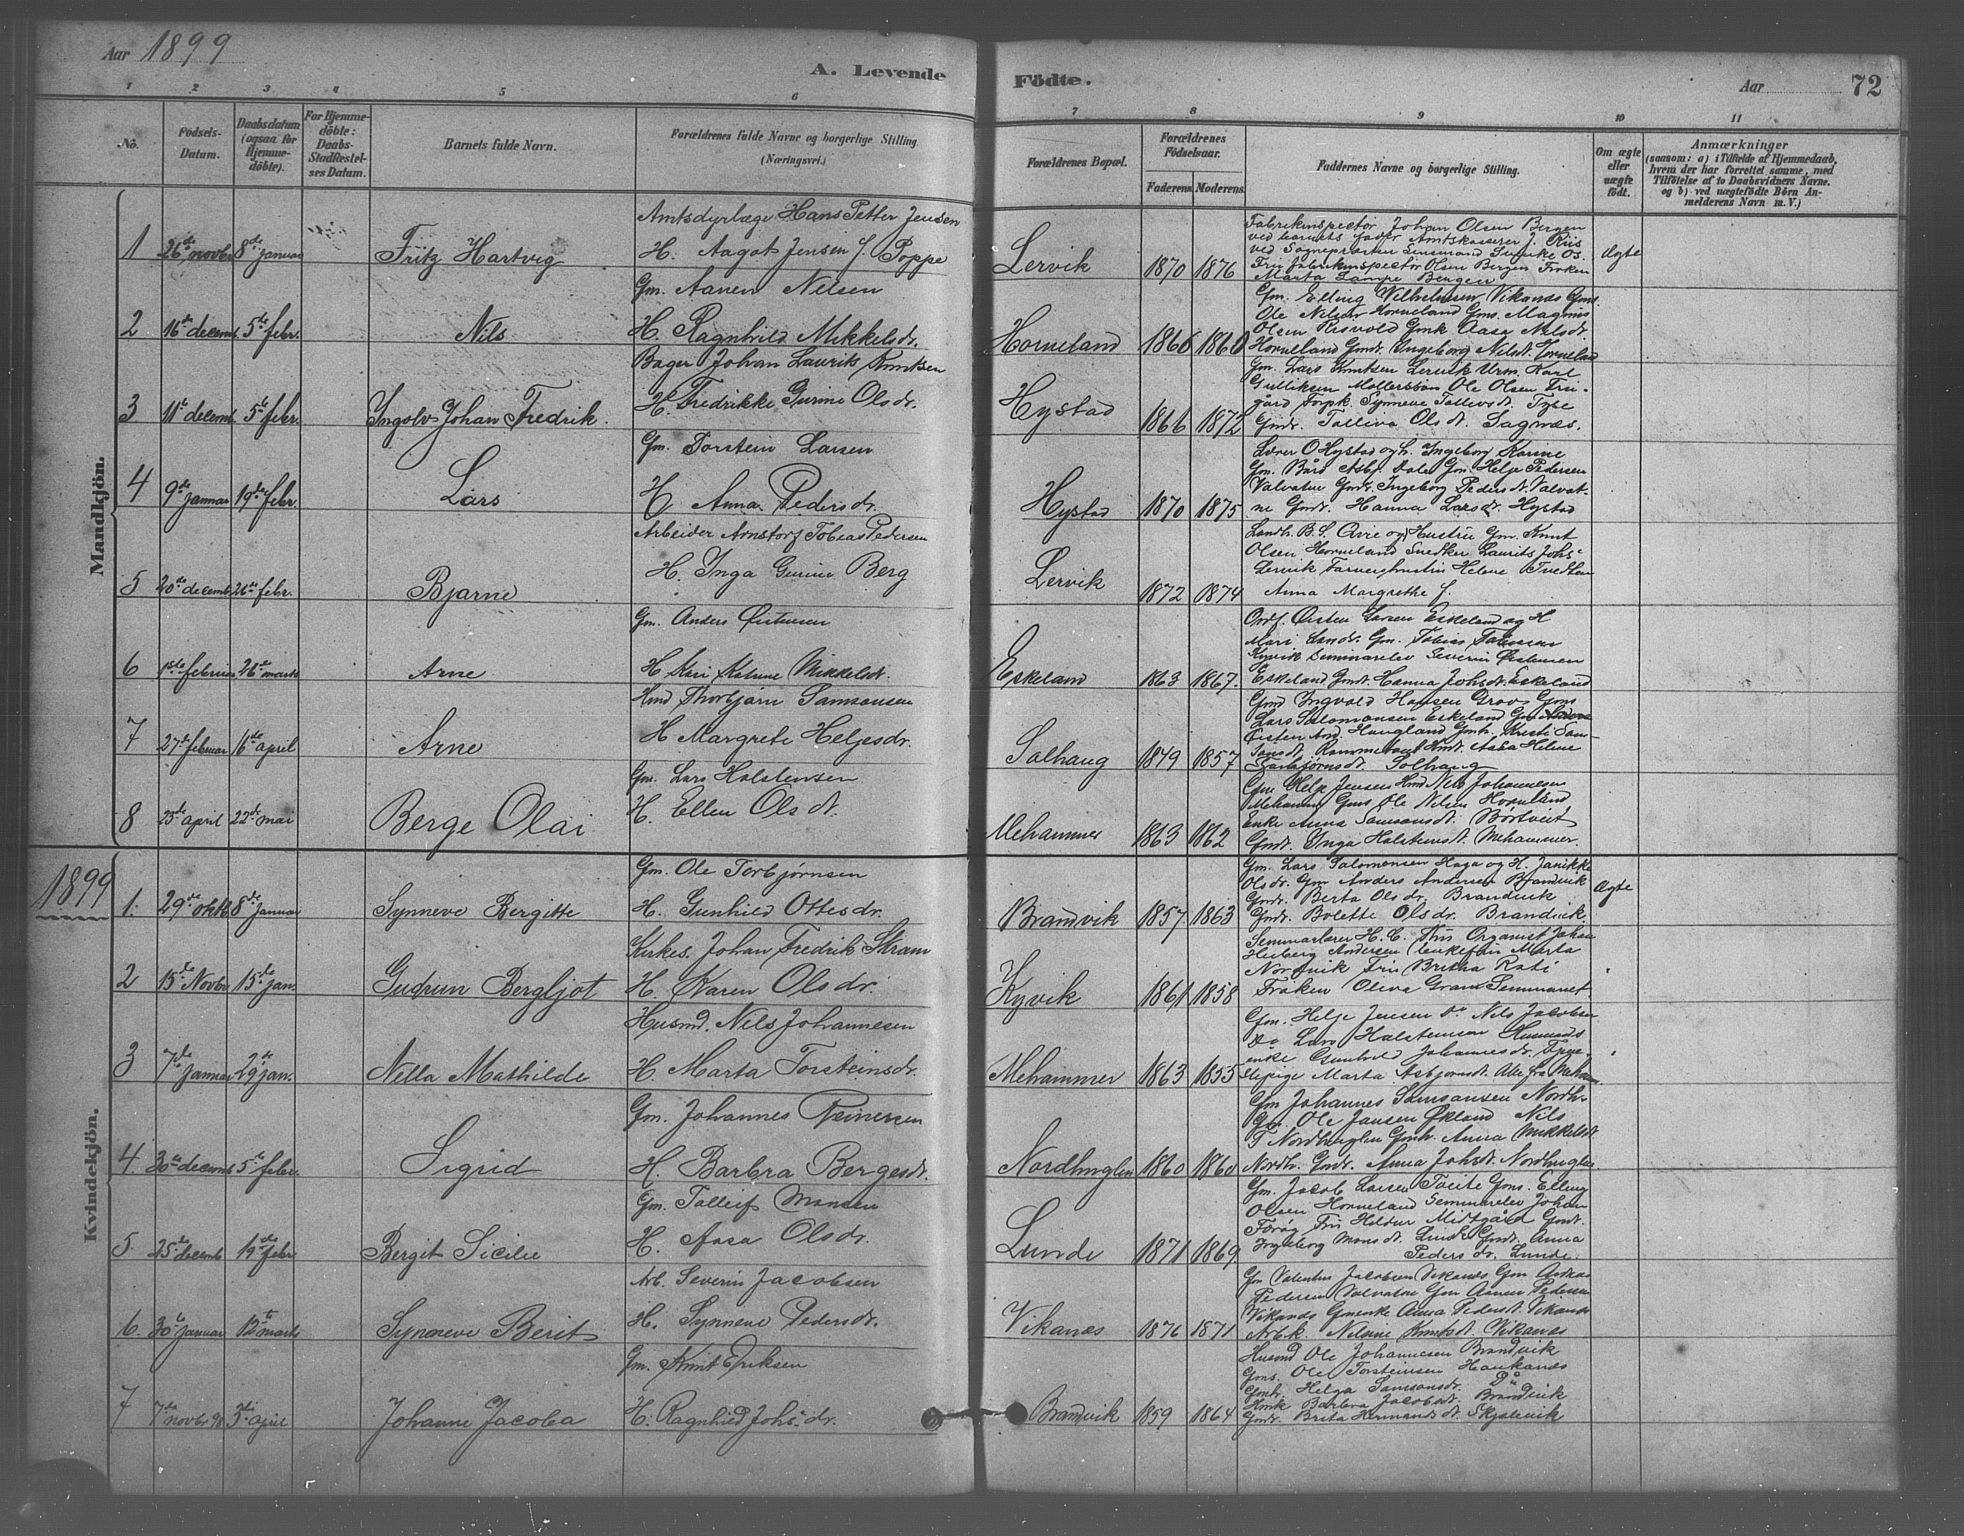 Aar 1899
A. Levende Födte.
Aar
72
1 2 3 4 5 6 7 8 9 10 11
No.
Fødsels-Datum.
Daabsdatum (ogsaa for Hjemme-döbte).
For Hjemme-döbte: Daabs-Stadfæstel-ses Datum.
Barnets fulde Navn.
Forældrenes fulde Navne og borgerlige Stilling (Næringsvei.)
Forældrenes Bopæl.
Forældrenes Födselsaar.
Faderens. Moderens.
Faddernes Navne og borgerlige Stilling.
Om ægte eller uægte født.
Anmærkninger
(saasom: a) i Tilfælde af Hjemmedaab,
hvem der har forrettet samme, med
Tilföielse af to Daabsvidners Navne.
og b) ved uægtefödte Börn An-
melderens Navn m. V.)
Mandkjön.
1 26de novbr 8de januar Fritz Hartvig
Amtsdyrlæge Hans Petter Jensen
H. Aagot Jensen f. Poppe
Lervik 1870 1876
Fabrikinspector Johan Olsen Bergen
ved barnets fader Amtskasserer J. Riis
Marta Lampe Bergen
Ægte
2 16de decemb. 5te febr. Nils
Gm. Aanen Nilsen
H. Ragnhild Mikkelsdr.
Horneland 1866 1860
Gm. Elling Vilhelmsen Vikanæs Gms.
Ole Nilsen Horneland Gms. Magnus
Olsen Gmk Aasa Nilsdr.
Horneland Gmdr. Ingeborg Nilsdr. Horneland
3 11te decemb. 5te febr. Ingolv Johan Fredrik.
Bager Johan Laurik Knutsen
H. Fredrikke Gurine Olsdr.
Hystad 1866 1872
Gm. Lars Knutsen Lervik Urm. Karl
Gulliksen Ole Olsen
Synneve
Gmdr. Olsdt. Sagnæs.
4 9de januar 19de febr. Lars
Gm. Torstein Larsen
H Anna Pedersdr.
Hystad 1870 1875
Lærer O Hystad og h. Ingeborg Karine
Gm. Bård Asbj. Dale Gm. Helge Pedersen
Valvatne Gmdr. Ingeborg Pedersdt. Valvat-
ne Gmdt. Hanna Larsdr. Hystad
5 20de decemb 26de febr. Bjarne
Arbeider Arnstorf Tobias Pedersen
H. Inga Gurine Berg
Lervik 1872 1874
Landh. B. S. og Hustru Gm. Knut
Olsen Horneland Snedker Laurits Johs.
Lervik Helene
Anna Margrethe f.
6 1ste februar 26de marts Arne
Gm. Anders Østensen
H Kari Katrine Mikkelsdt.
Eskeland 1863 1867.
Østen Larsen Eskeland og H
Mari Gm. Tobias
Kyvik Seminarelev Severin Østensen
Eskeland Gmdt. Hanna Johsdt. Eskeland
7 27de februar 16de april Arne
Hmd Thorbjørn Samsonsen
H Margrete Helgesdr.
Solhaug 1849 1857
Gmd Ingvald Hansen Grov Gms
Lars Salomonsen Eskeland
Østen And. Haugland Gmh. Kristi Sam-
sonsdt. Hmdt. Aasa Helene
Torbjørnsdt. Solhaug
8 23de april 22de mai Berge Olai
Gm. Lars Halstensen
H. Ellen Olsdt.
Mehammer 1863 1862
Gm Helge Jensen Hmd Nils Johannesen
Mehammer Gms Ole Nilsen Horneland
Enke Anna Samsonsdt. Børtveit
Gmdt. Inga Halstensdt. Mehammer.
1899
Kvindekjön.
1. 29de oktb. 8de januar Synneve Bergitte
Gm. Ole Torbjørnsen
H. Gunhild Ottesdr.
Brandvik 1857. 1863
Gm. Lars Salomonsen Haga og H. Janikke
Olsdr. Gm Anders Andersen Brandvik
Gmdr. Berta Olsdr. Brandvik
Gmdr. Bolette Olsdr. Brandvik.
Ægte
2 15de Novbr 15de jan. Gudrun Bergljot
Kirkes. Johan Fredrik Strøm
H. Karen Olsdr.
Kyvik 1861 1858
Seminarlærer H. C. Organist Johan
Heiberg Andersen Marta
Nordvik Fru Britha Rati
Frøken Oliva Seminaret.
3 7de januar 29de jan. Nella Mathilde
Husmd. Nils Johannesen
H. Marta Torsteinsdr.
Mehammer 1863 1855
Gm. Helge Jensen Do Nils Jacobsen
Do Lars Halstensen Husmands
enke Gunhild Johannesdr. Tjene-
stepige Marta Asbjørnsdt. Alle fra Meham.
4 30te decemb 5te febr. Sigrid
Gm. Johannes Reinersen
H. Barbra Bergesdt.
Nordhuglen 1860 1860
Gm Johannes Samsonsen Nordh.
Gm. Ole Jansen Økland Nils
T Nordhuglen Gmh. Anna Mikkelsdt.
Nordh. Gmdt. Anna Johsdt. Nordhuglen
5. 25de decemb 19de febr Bergit Sicilie
Gm. Tolleif Monsen
H. Aasa Olsdr.
Lunde 1871 1869.
Gm. Jacob Larsen Tveite Gms. Elling
Olsen Horneland Seminarelev Johan
Fru Heldur Midtgård Gmdt.
Ingeborg Monsdt. Lunde Gmdt. Anna
Pedersdr. Lunde.
6. 30te januar 12te marts Synneve Berit
Arb. Severin Jacobsen
H. Synneve Pedersdr.
Vikanæs 1876 1871
Gm Valentin Jacobsen Vikanæs Gm Andreas
Pedersen Valvatne Gm Aanen Pedersen
Vikanæs Gmenke Anna Pedersdt. Vikanæs
Arbk. Nilsine Knutsdt. Vikanæs
7 7de novbr 98 3di april Johanne Jacoba
Gm. Knut Eriksen
H. Ragnhild Johs.dr.
Brandvik 1859 1864
Husmd Ole Johannesen Brandvik
Gms. Ole Torsteinsen Haukanæs
Gmh. Helga Samsonsdr. Do
Hmk Barbra Jacobsdt. Brandvik
Gmdr. Brita Hermandsdt. Skjelevik